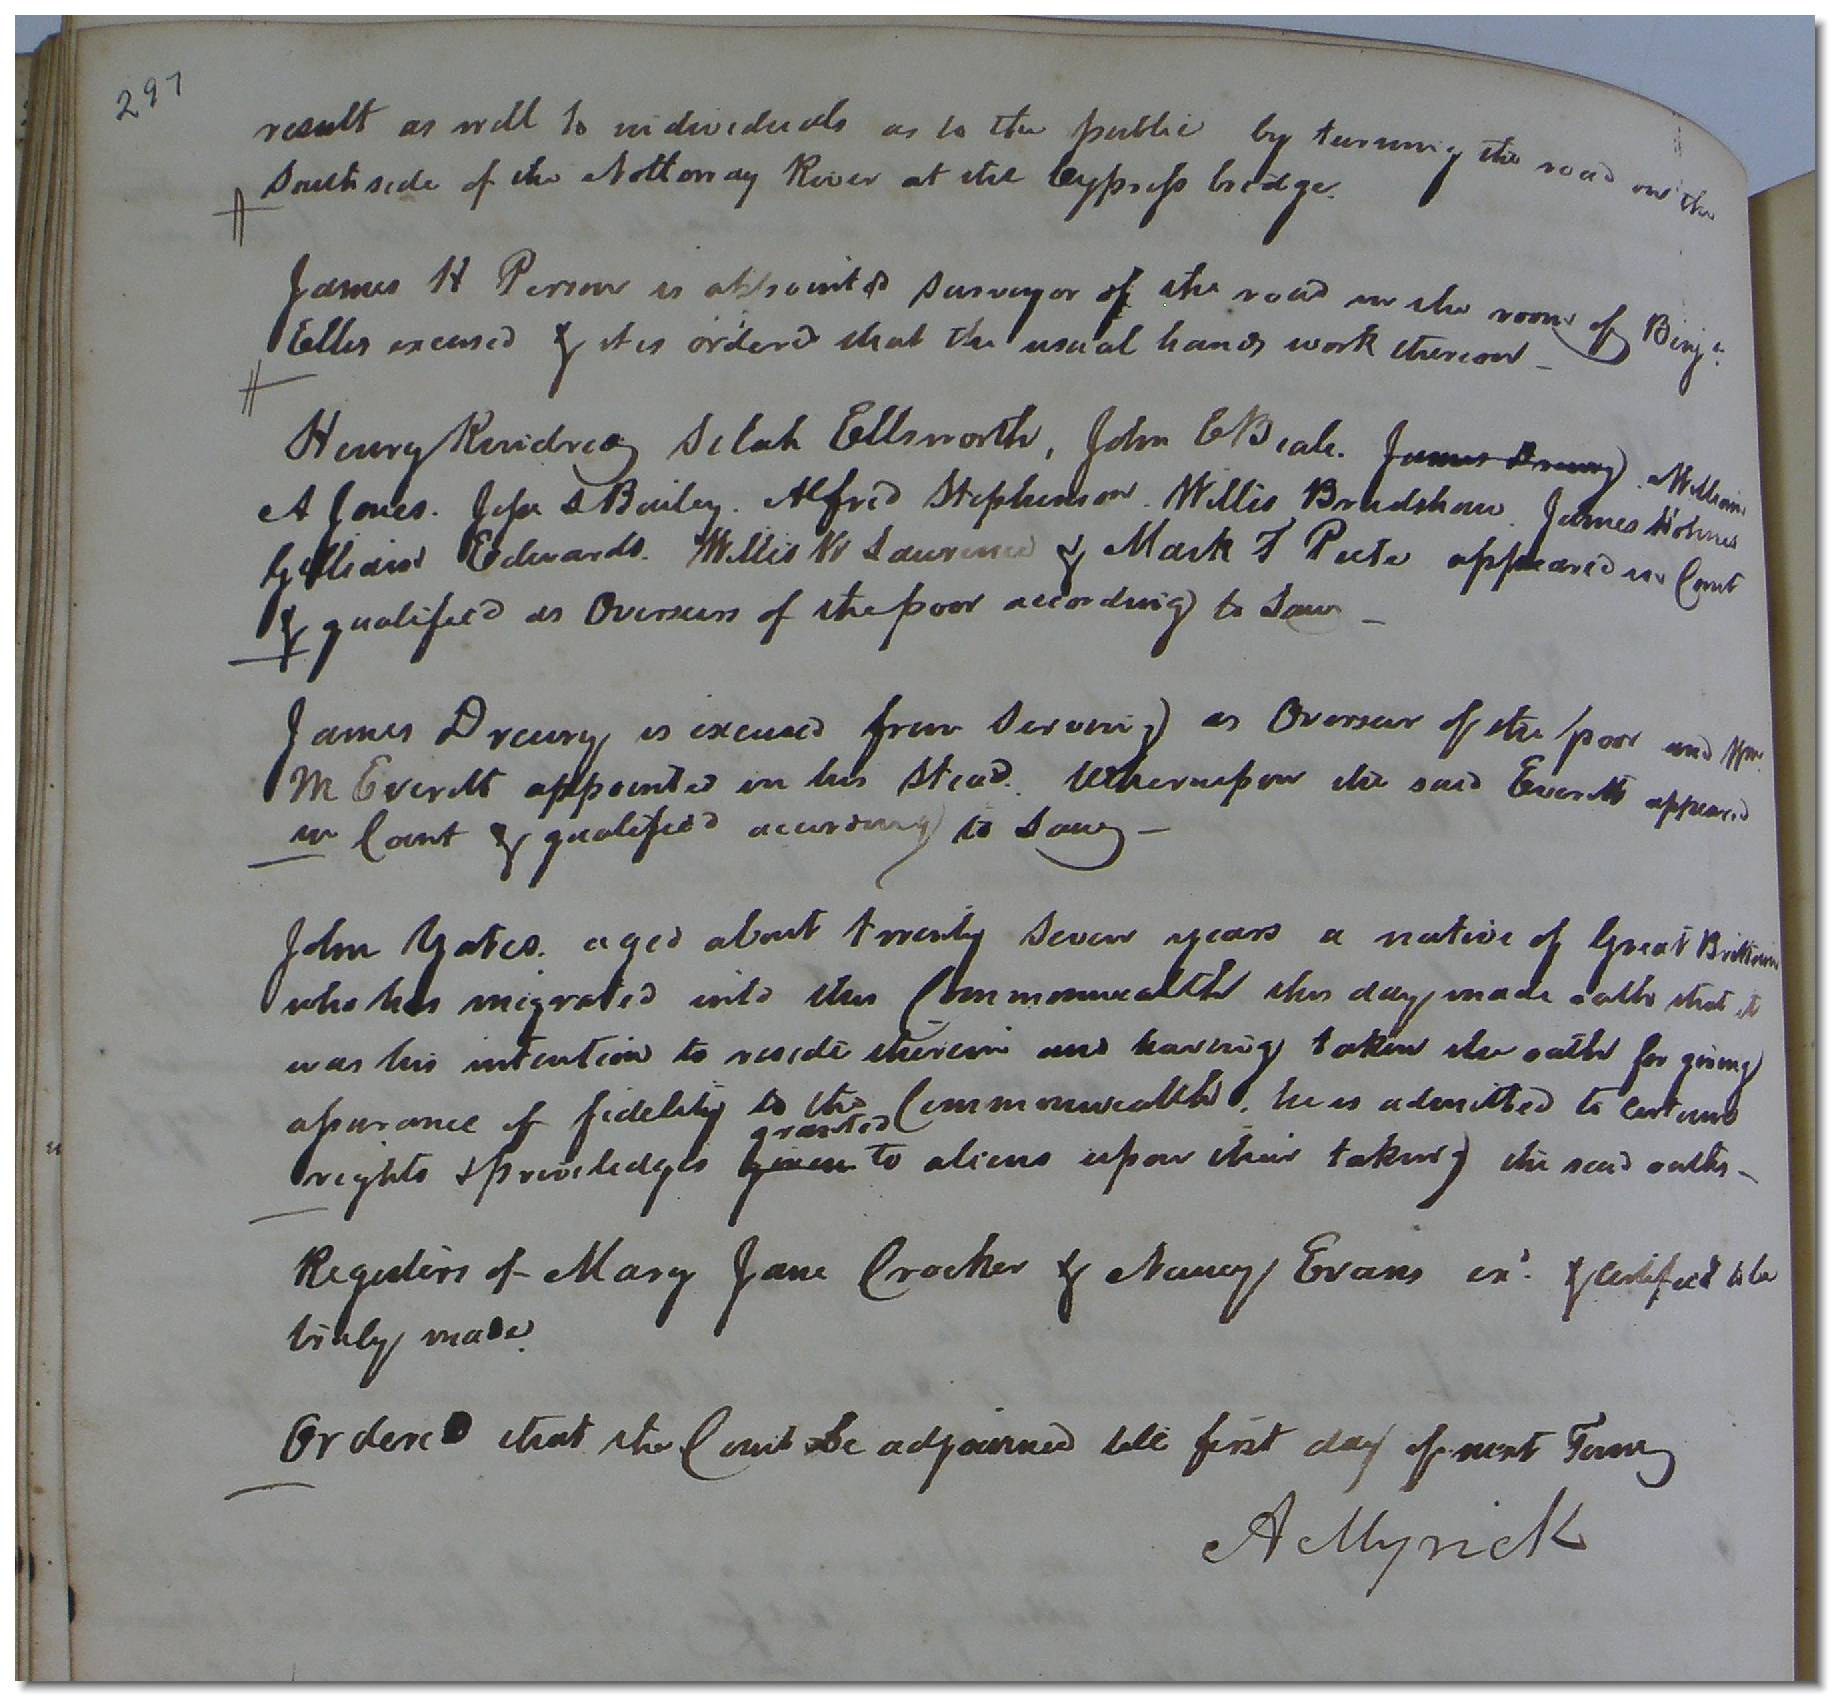 297
result as well to individuals as to the public by turning the road on the
South side of the Nottoway River at the Cypress bridge.
James H Person is appointed surveyor of the road in the room of Benja.
Ellis excused & it is ordered that the usual hands work thereon –
Henry Kindred Selah Ellsworth, John E Beale. James Drewry. William
A Jones. Jesse S Bailey. Alfred Stephenson. Willis Bradshaw. James Holmes
Gilliam Edwards. Willis W Lawrence & Mark F Pete appeared in Court
& qualified as Overseers of the poor according to Law –
James Drewry is excused from serving as Overseer of the poor and Wm.
M Everett appointed in his stead. Whereupon the said Everett appeared
in Court & qualified according to Law –
John Yates. aged about twenty seven years a native of Great Brittain
who has migrated into this Commonwealth this day made oath that it
was his intention to reside therein and having taken the oath for giving
assurance of fidelity to the Commonwealth. he is admitted to certain
granted
rights & priviledges given to aliens upon their taking the said oaths –
Registers of Mary Jane Crocker & Nancy Evans exd. & certified to be
truly made.
Ordered that the Court be adjourned till first day of next Term
A Myrick